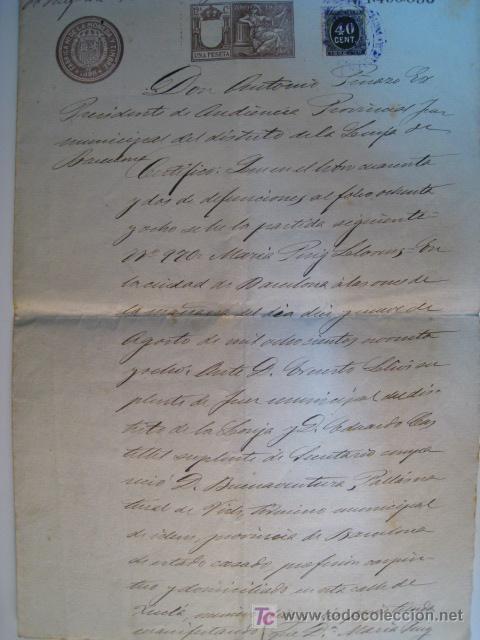 UNA PESETA
40
CENT.
Don Antonio Pinazo Ex
Presidente de Audiencia Provincial Juez
municipal del distrito de la Lonja de
Barcelona
Certifico: Que en el libro cuarenta
y dos de defunciones al folio ochenta
y ocho se lee la partida siguiente=
Nº 970= Maria Puig = En
la ciudad de Barcelona á las once de
la mañana del dia diez y nueve de
Agosto de mil ochocientos noventa
y ocho: Ante D. Ernesto su
plente de Juez municipal del dis
trito de la Lonja y D. Eduardo Cas
tells suplente de Secretario compa
reció D. Buenaventura na
tural de Vich, termino municipal
de idem, provincia de Barcelona
de estado casado, profesion carpin
tero y domiciliado en esta calle de
manifestando que Dª Maria Puig
todocoleccion.net
www.todocoleccion.net